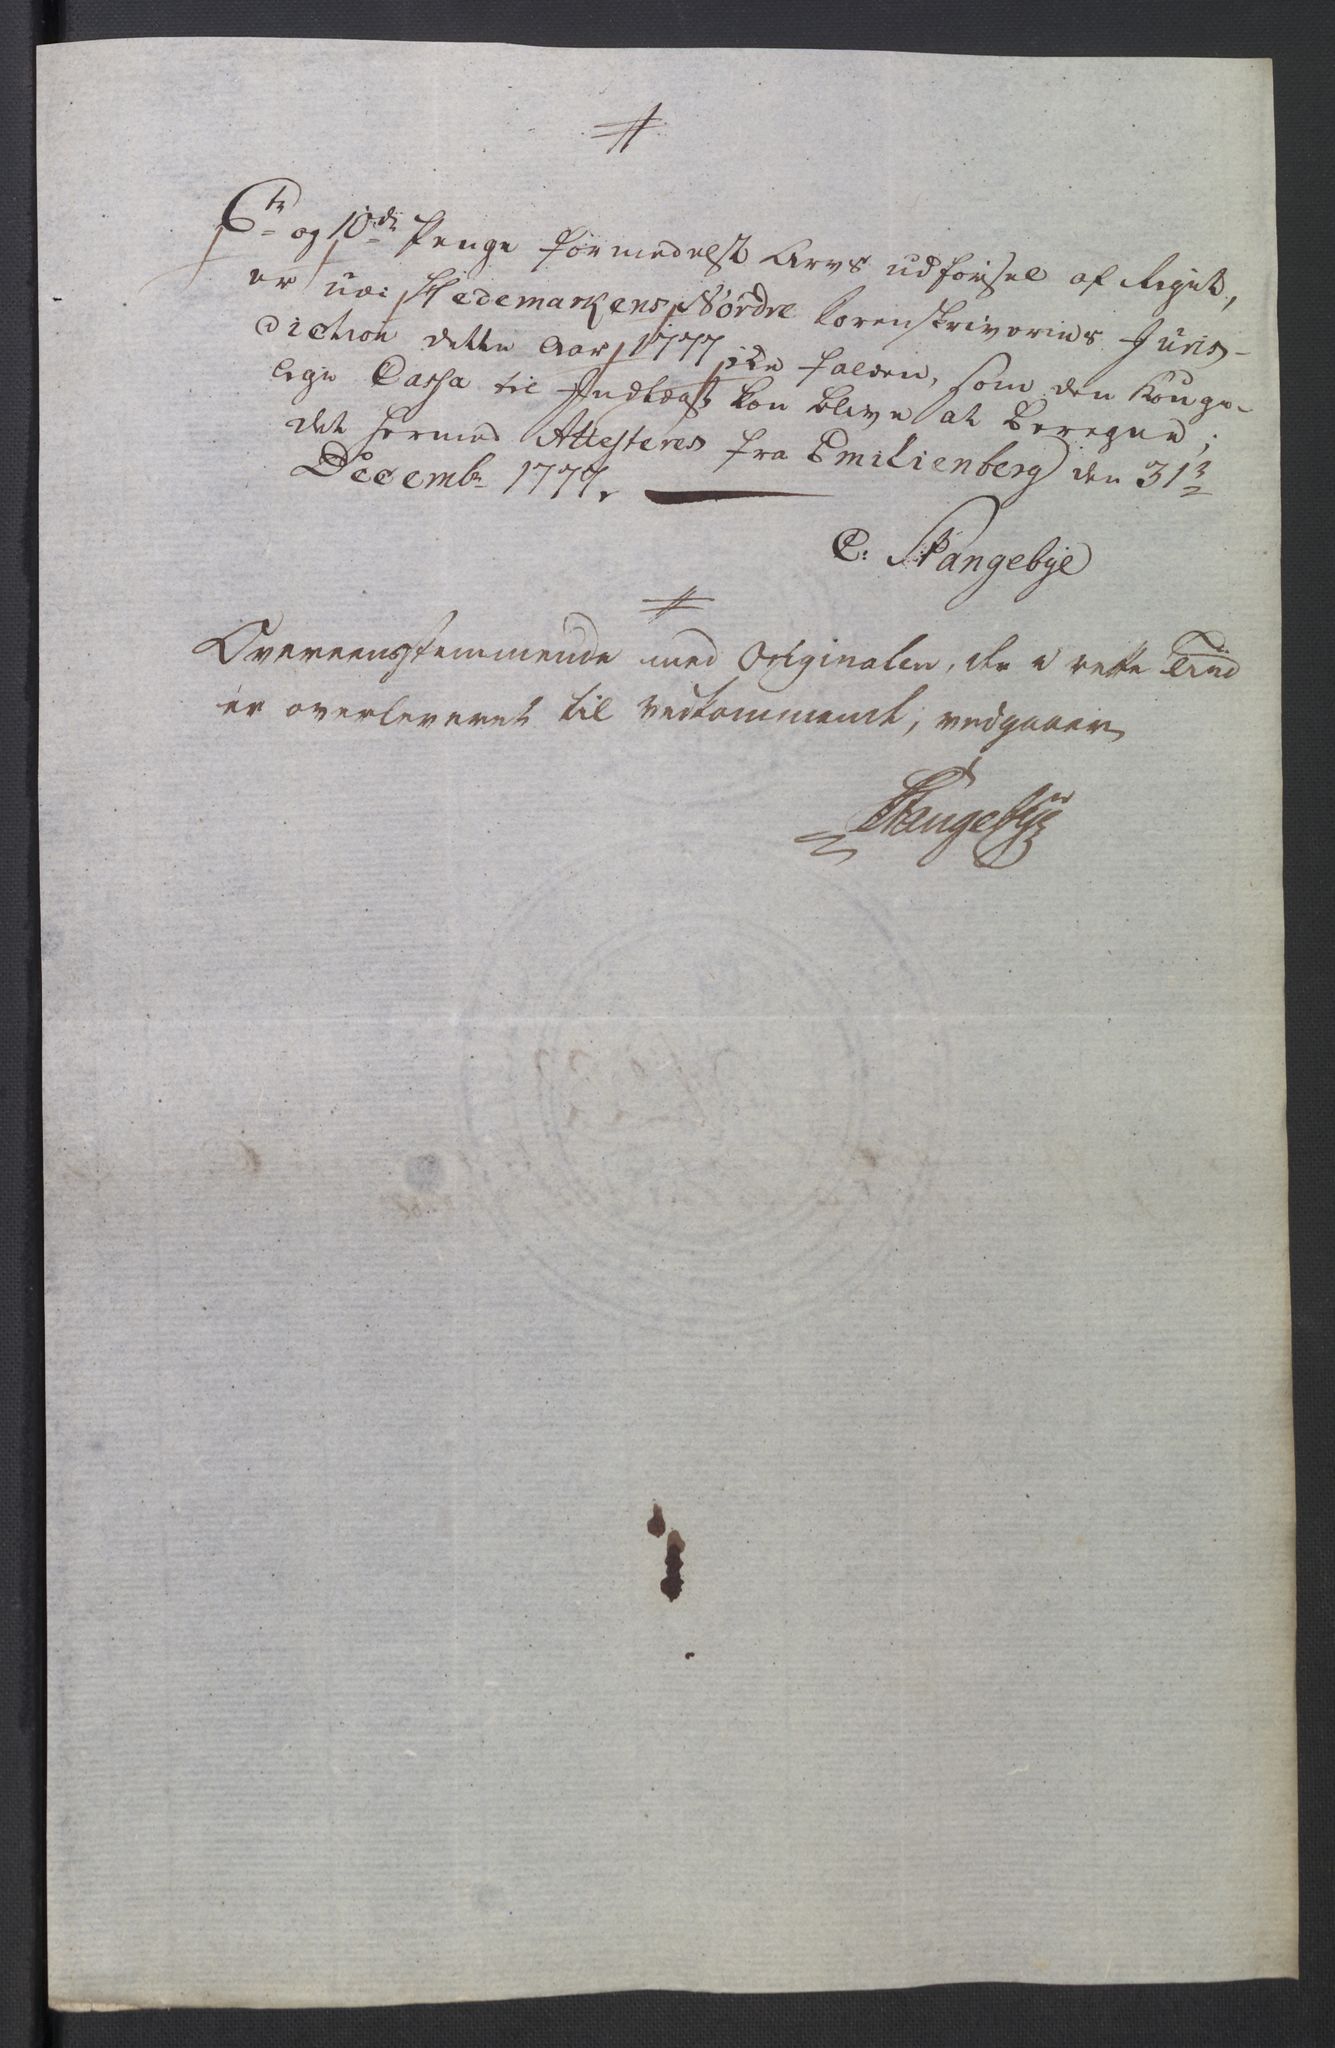 6te og 10de Penge formedelst Arvs udførsel af Riget,
er udi Hedemarkens Nordre Sorenskriveries Juris-
diction dette Aar 1777 ike falden, som den Konge-
lige Cassa til Indtægt kan blive at beregne;
det hermed Attesteres fra Emilienberg den 31te
Decembr 1777.
C: Stangebye
Overeensstemmende med Originalen, der i rette Tiid
er overleveret til vedkommende, vedgaaer
Stangebye